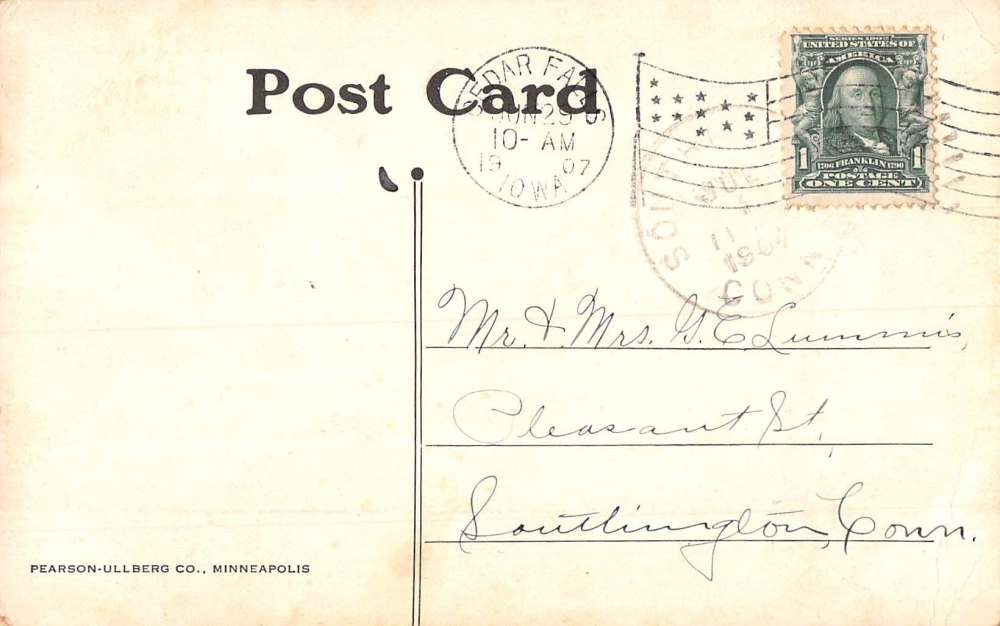 Post Card
CEDAR FALLS
JUN 29
10- AM
19 07
IOWA
SERIES 1902
UNITED STATES OF
AMERICA
1 1706 FRANKLIN 1790 1
POSTAGE
ONE CENT
11
CONN
Mr. & Mrs. G. E. Lummis,
Pleasant St,
Southington, Conn.
PEARSON-ULLBERG CO., MINNEAPOLIS